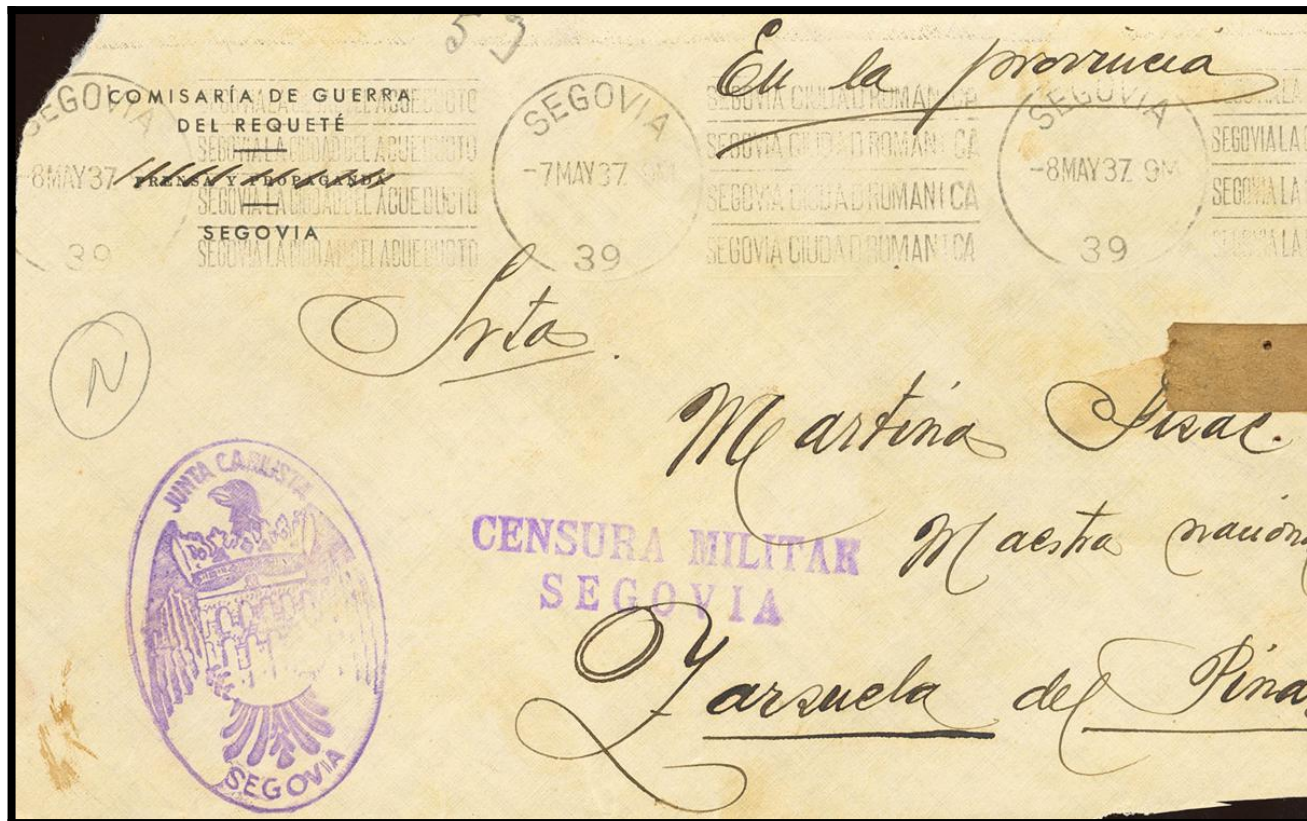 53
En la provincia
COMISARÍA DE GUERRA
DEL REQUETÉ
PRENSA Y PROPAGANDA
SEGOVIA
SEGOVIA
-8MAY37
39
SEGOVIA LA CIUDAD DEL ACUEDUCTO
SEGOVIA LA CIUDAD DEL ACUEDUCTO
SEGOVIA LA CIUDAD DEL ACUEDUCTO
SEGOVIA LA CIUDAD DEL ACUEDUCTO
SEGOVIA
-7MAY37
39
SEGOVIA CIUDAD ROMANICA
SEGOVIA CIUDAD ROMANICA
SEGOVIA CIUDAD ROMANICA
SEGOVIA CIUDAD ROMANICA
SEGOVIA
-8MAY37 9M
39
SEGOVIA LA
SEGOVIA LA
Srta.
N
Martina
Maestra naciona
Zarzuela del Pina
JUNTA CARLISTA
SEGOVIA
CENSURA MILITAR
SEGOVIA